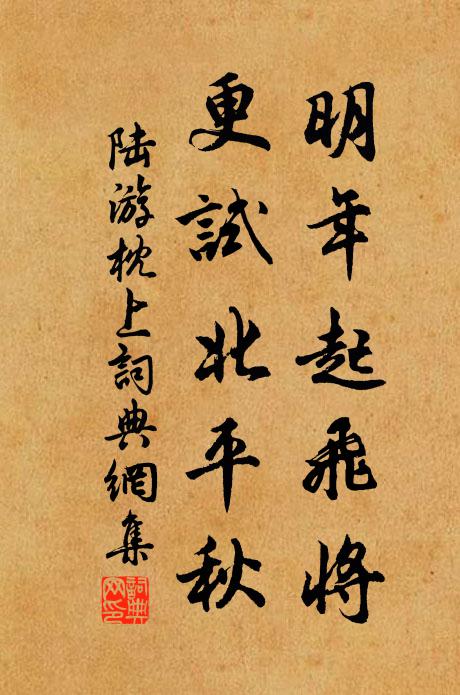 明年起飛將
更試北平秋
陆游枕上詞典網集
詞典网印